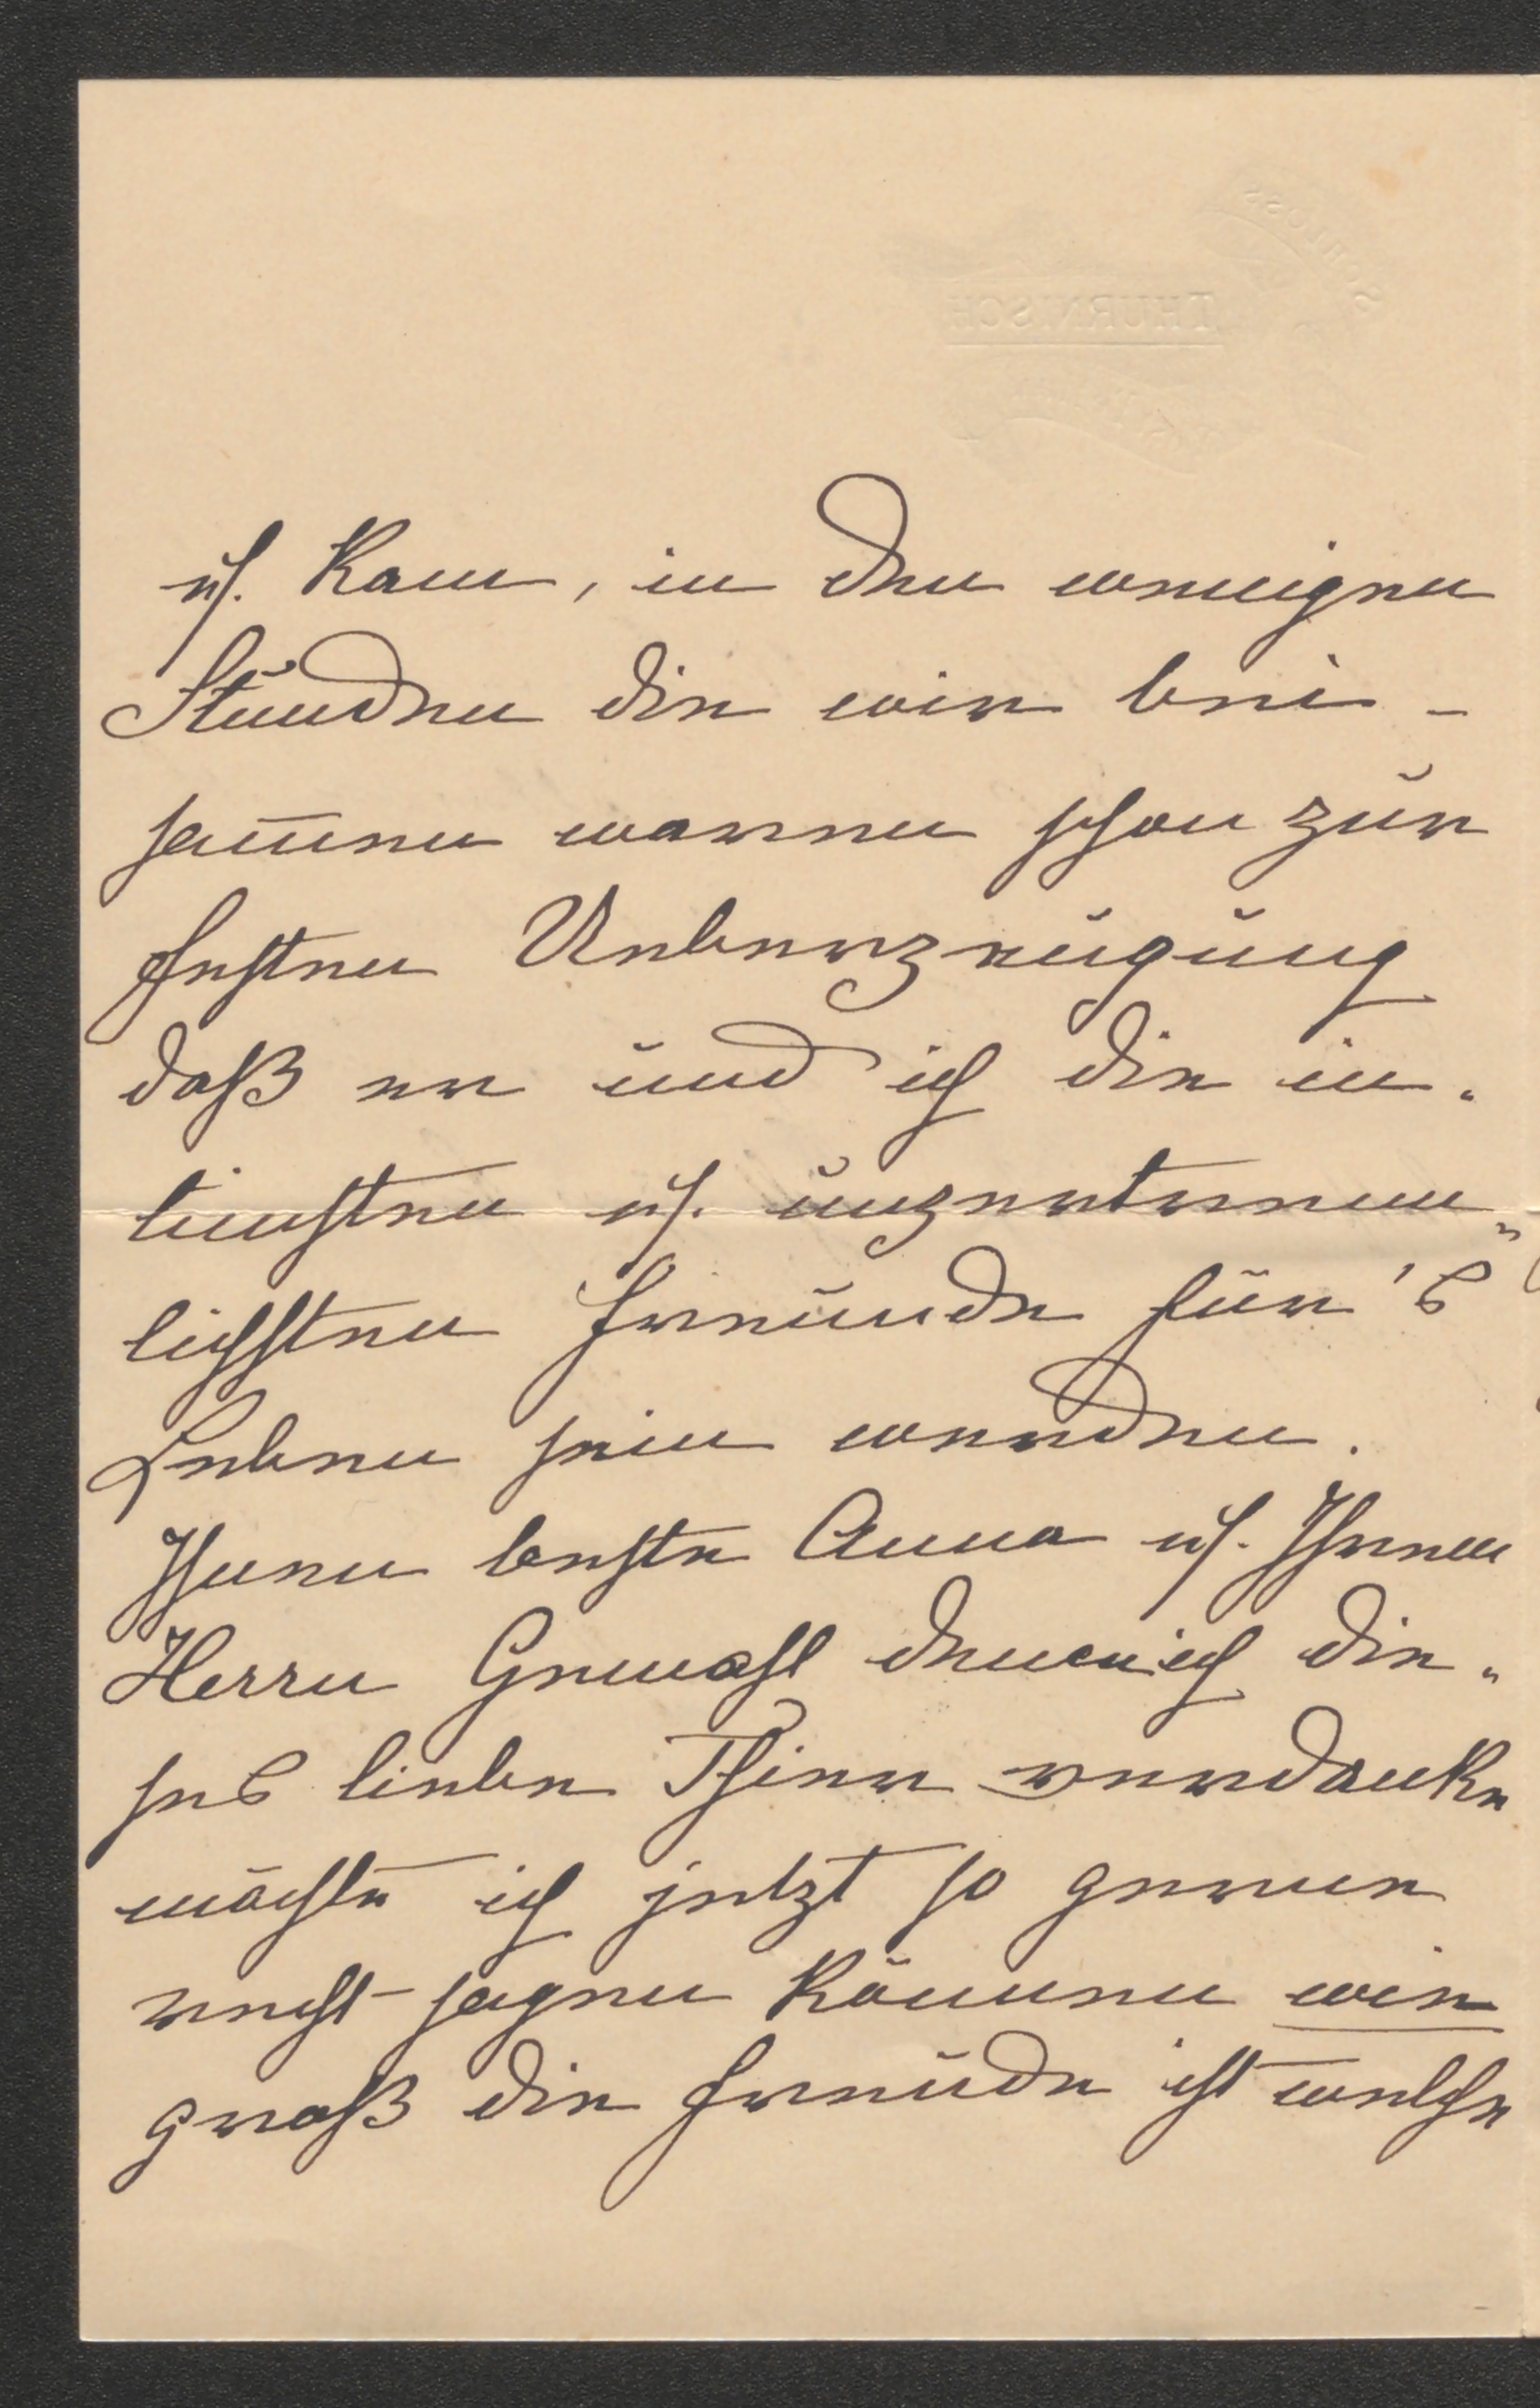 SCHLOSS
THURNISCH
u. kam, in den wenigen
Stunden die wir bei-
sam̅en waren schon zur
festen Ueberzeugung
daß er und ich die in-
timsten u. unzertrenn-
lichsten Freunde für's
Leben sein werden.
Ihnen beste Anna u. Ihrem
Herrn Gemahl dem ich die-
ses liebe Thier verdanke
möchte ich jetzt so gerne
recht sagen können wie
groß die Freude ist welche